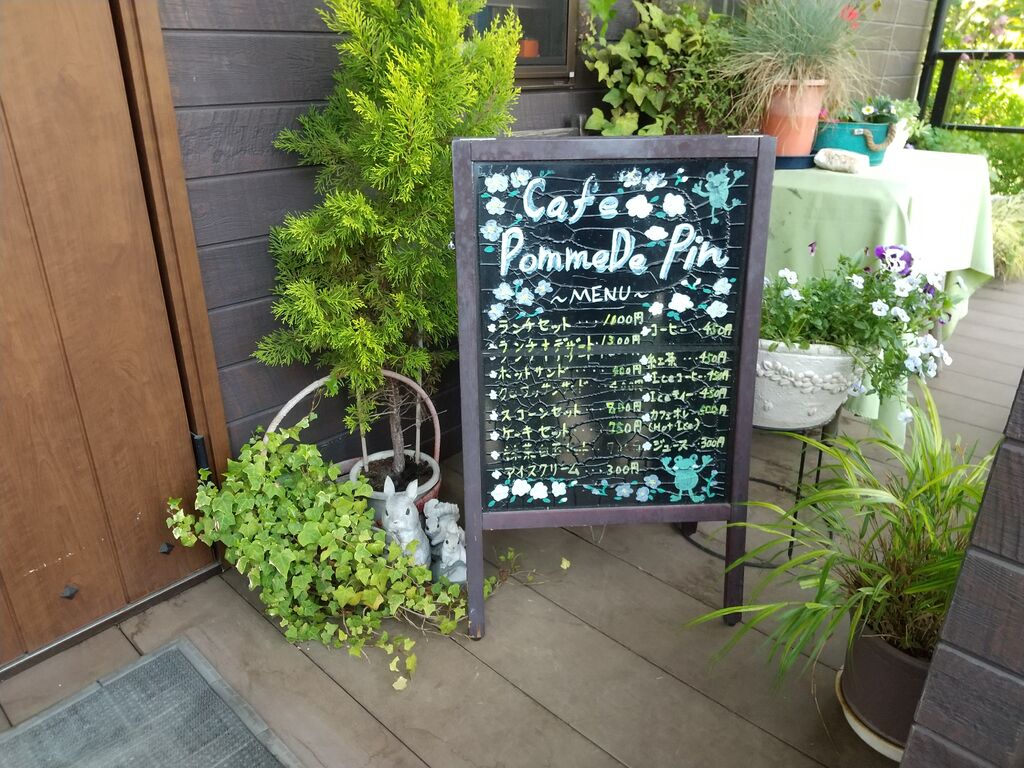 Cafe
Pomme De Pin
~MENU~
ランチセット 1000円
ランチ+デザート 1300円
ホットサンド
スコーンセット 800円
ケーキセット 750円
アイスクリーム 300円
コーヒー 450円
紅茶 450円
Iceコーヒー 450円
Iceティー 450円
カフェオレ 500円
(Hot Ice)
ジュース 300円